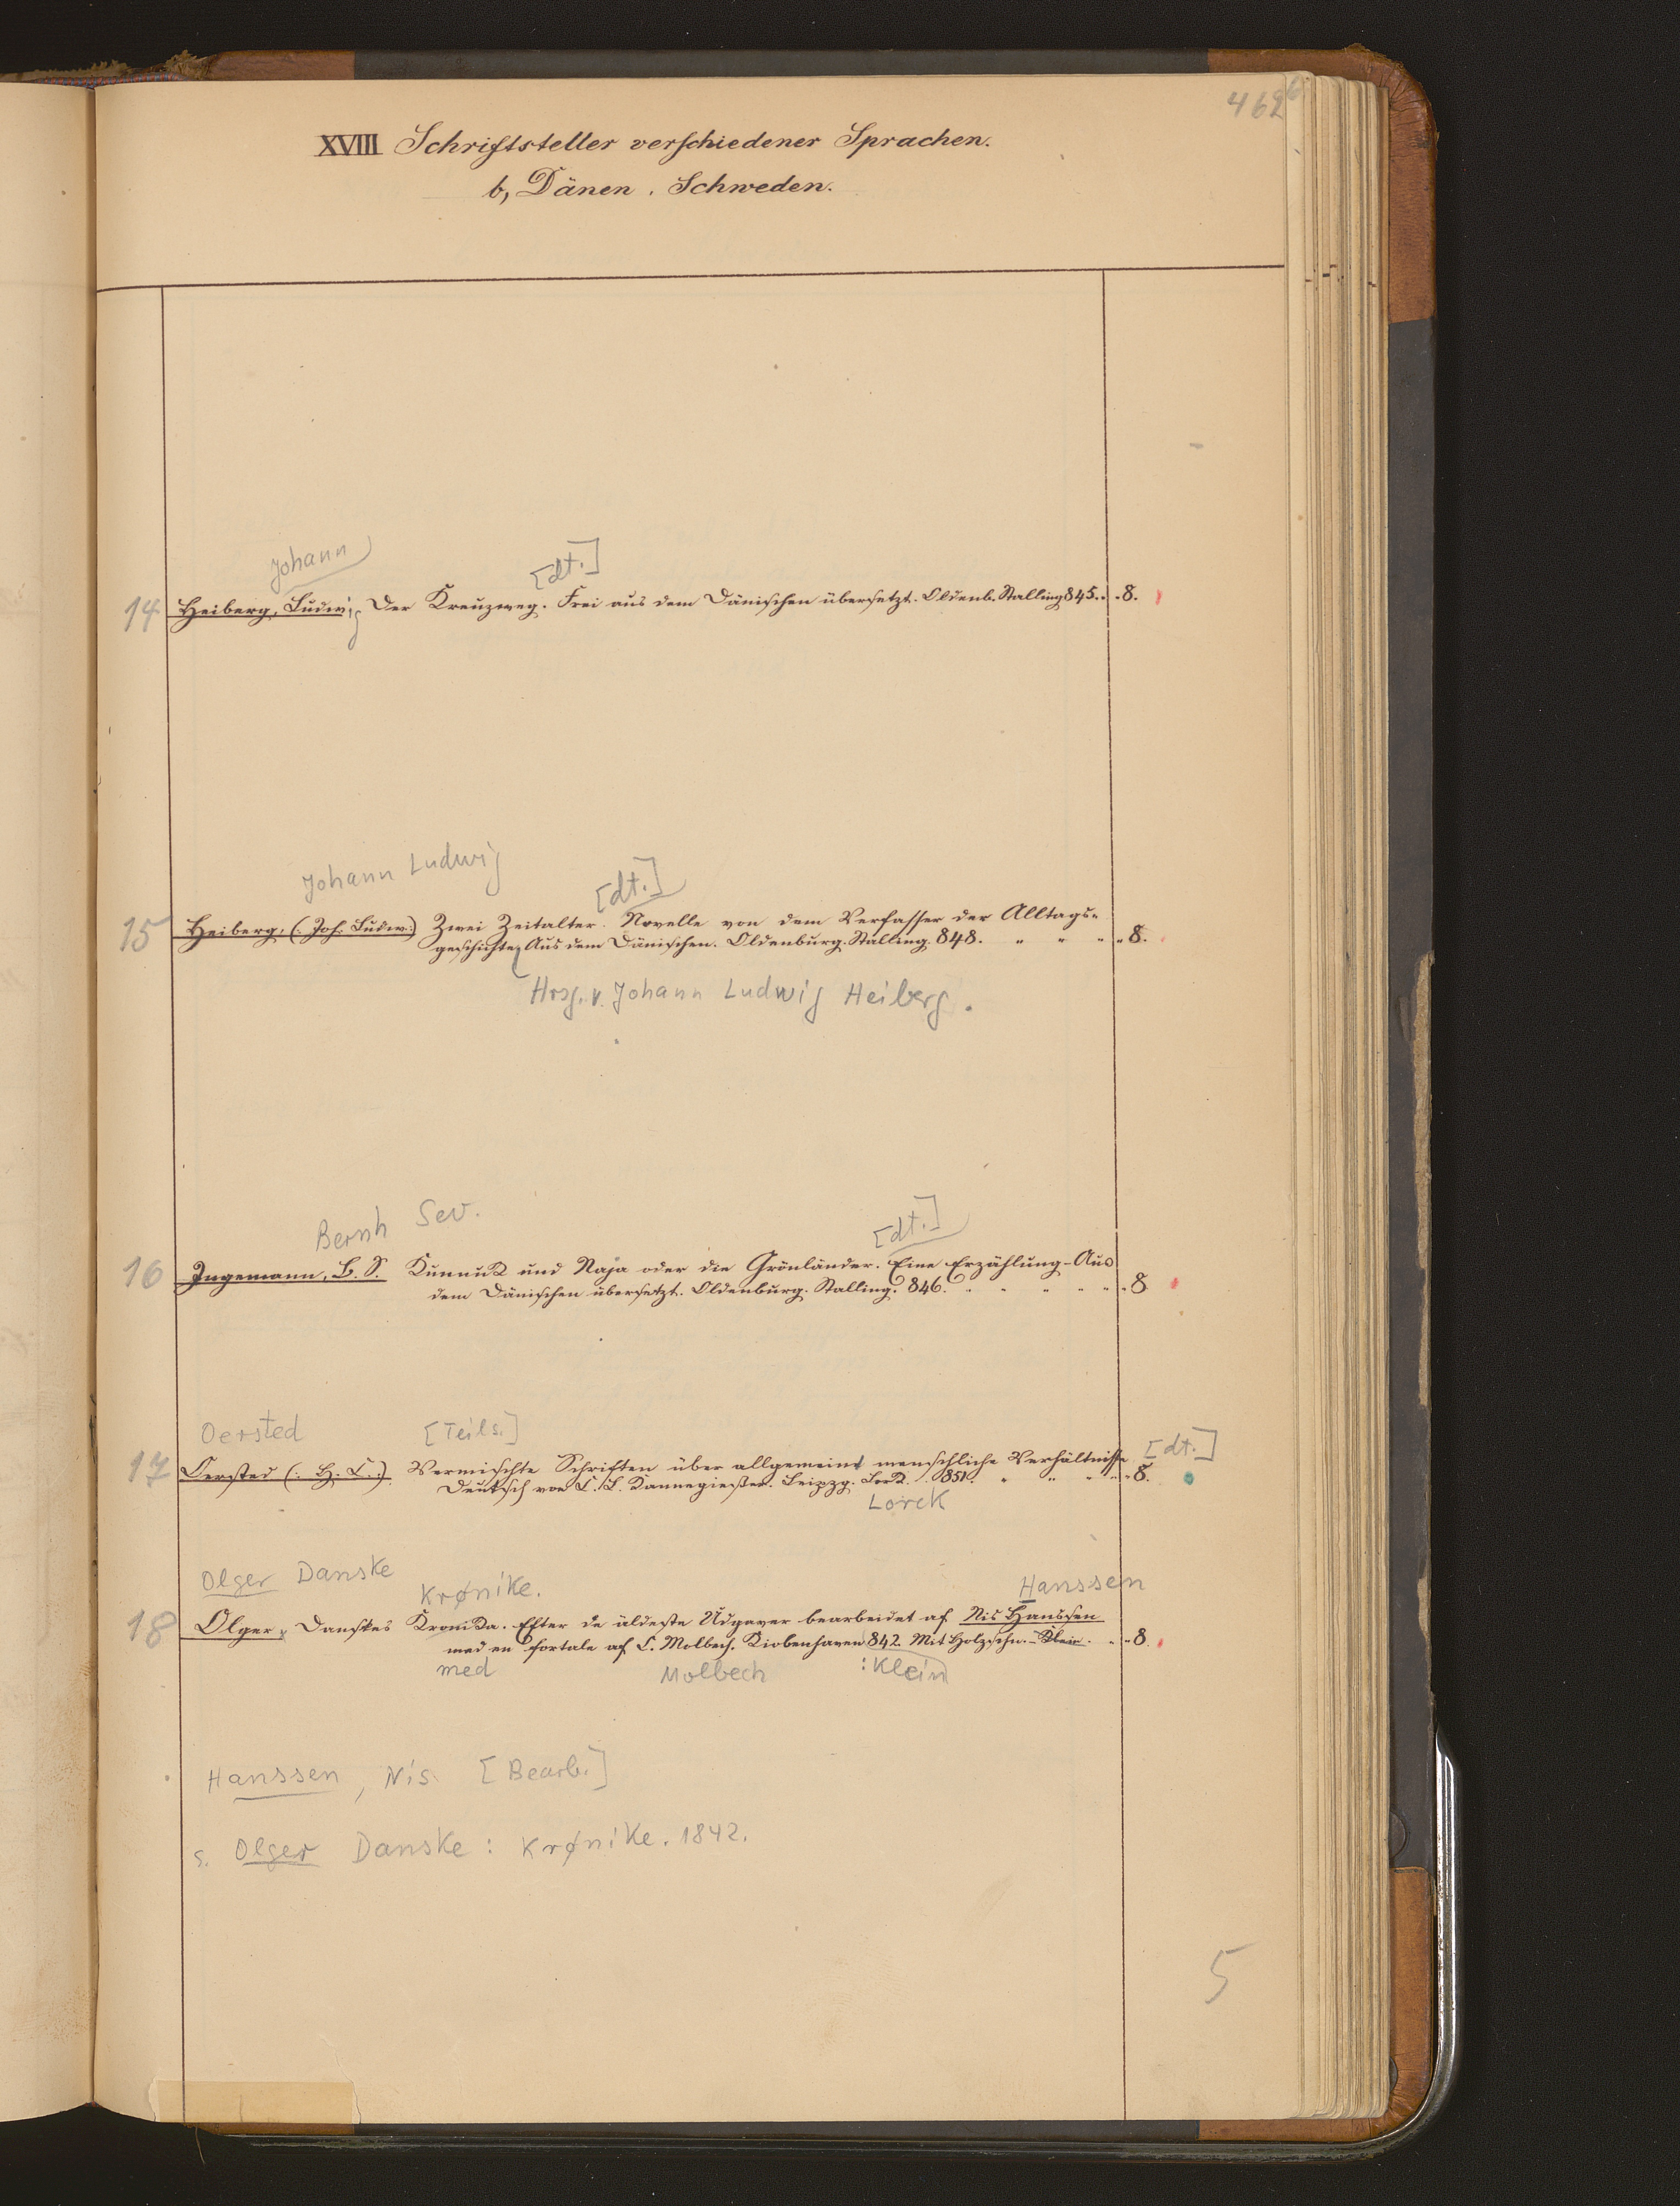 462b
XVIII Schriftsteller verschiedener Sprachen.
b, Dänen. Schweden.
Johann [dt.]
14 Heiberg, Ludwig Der Kreuzweg. Frei aus dem Dänischen übersetzt. Oldenb. Stalling 845. . 8.
Johann Ludwig [dt.]
15 Heiberg, (: Joh. Ludw:) Zwei Zeitalter. Novelle von dem Verfasser der Alltags=
geschichte. Aus dem Dänischen. Oldenburg. Stalling. 848. " " " " 8.
Hrsg. v. Johann Ludwig Heiberg.
Bernh Sev. [dt.]
16 Ingemann, B. S. Kunnuk und Naja oder die Grönländer. Eine Erzählung - Aus
dem Dänischen übersetzt. Oldenburg. Stalling. 846. " " " " " " 8
Oersted [Teils.] [dt.]
17 Oersted (: H. C.:) Vermischte Schriften über allgemeine menschliche Verhältnisse
Deutsch von K. L. Kannegießer. Leipzg. Lork. 851. " " " " 8.
Lorck
Olger Danske Krønike. Hanssen
18 Olger, Danskes Kronika. Efter de äldeste Udgaver bearbeidet af Nis Hanssen
med en Fortale af C. Molbech. Kiobenhaven 842. Mit Holzschn. - Klein. " " 8.
med Molbech : Klein
Hanssen, Nis [Bearb.]
s. Olger Danske: Krønike. 1842.
5